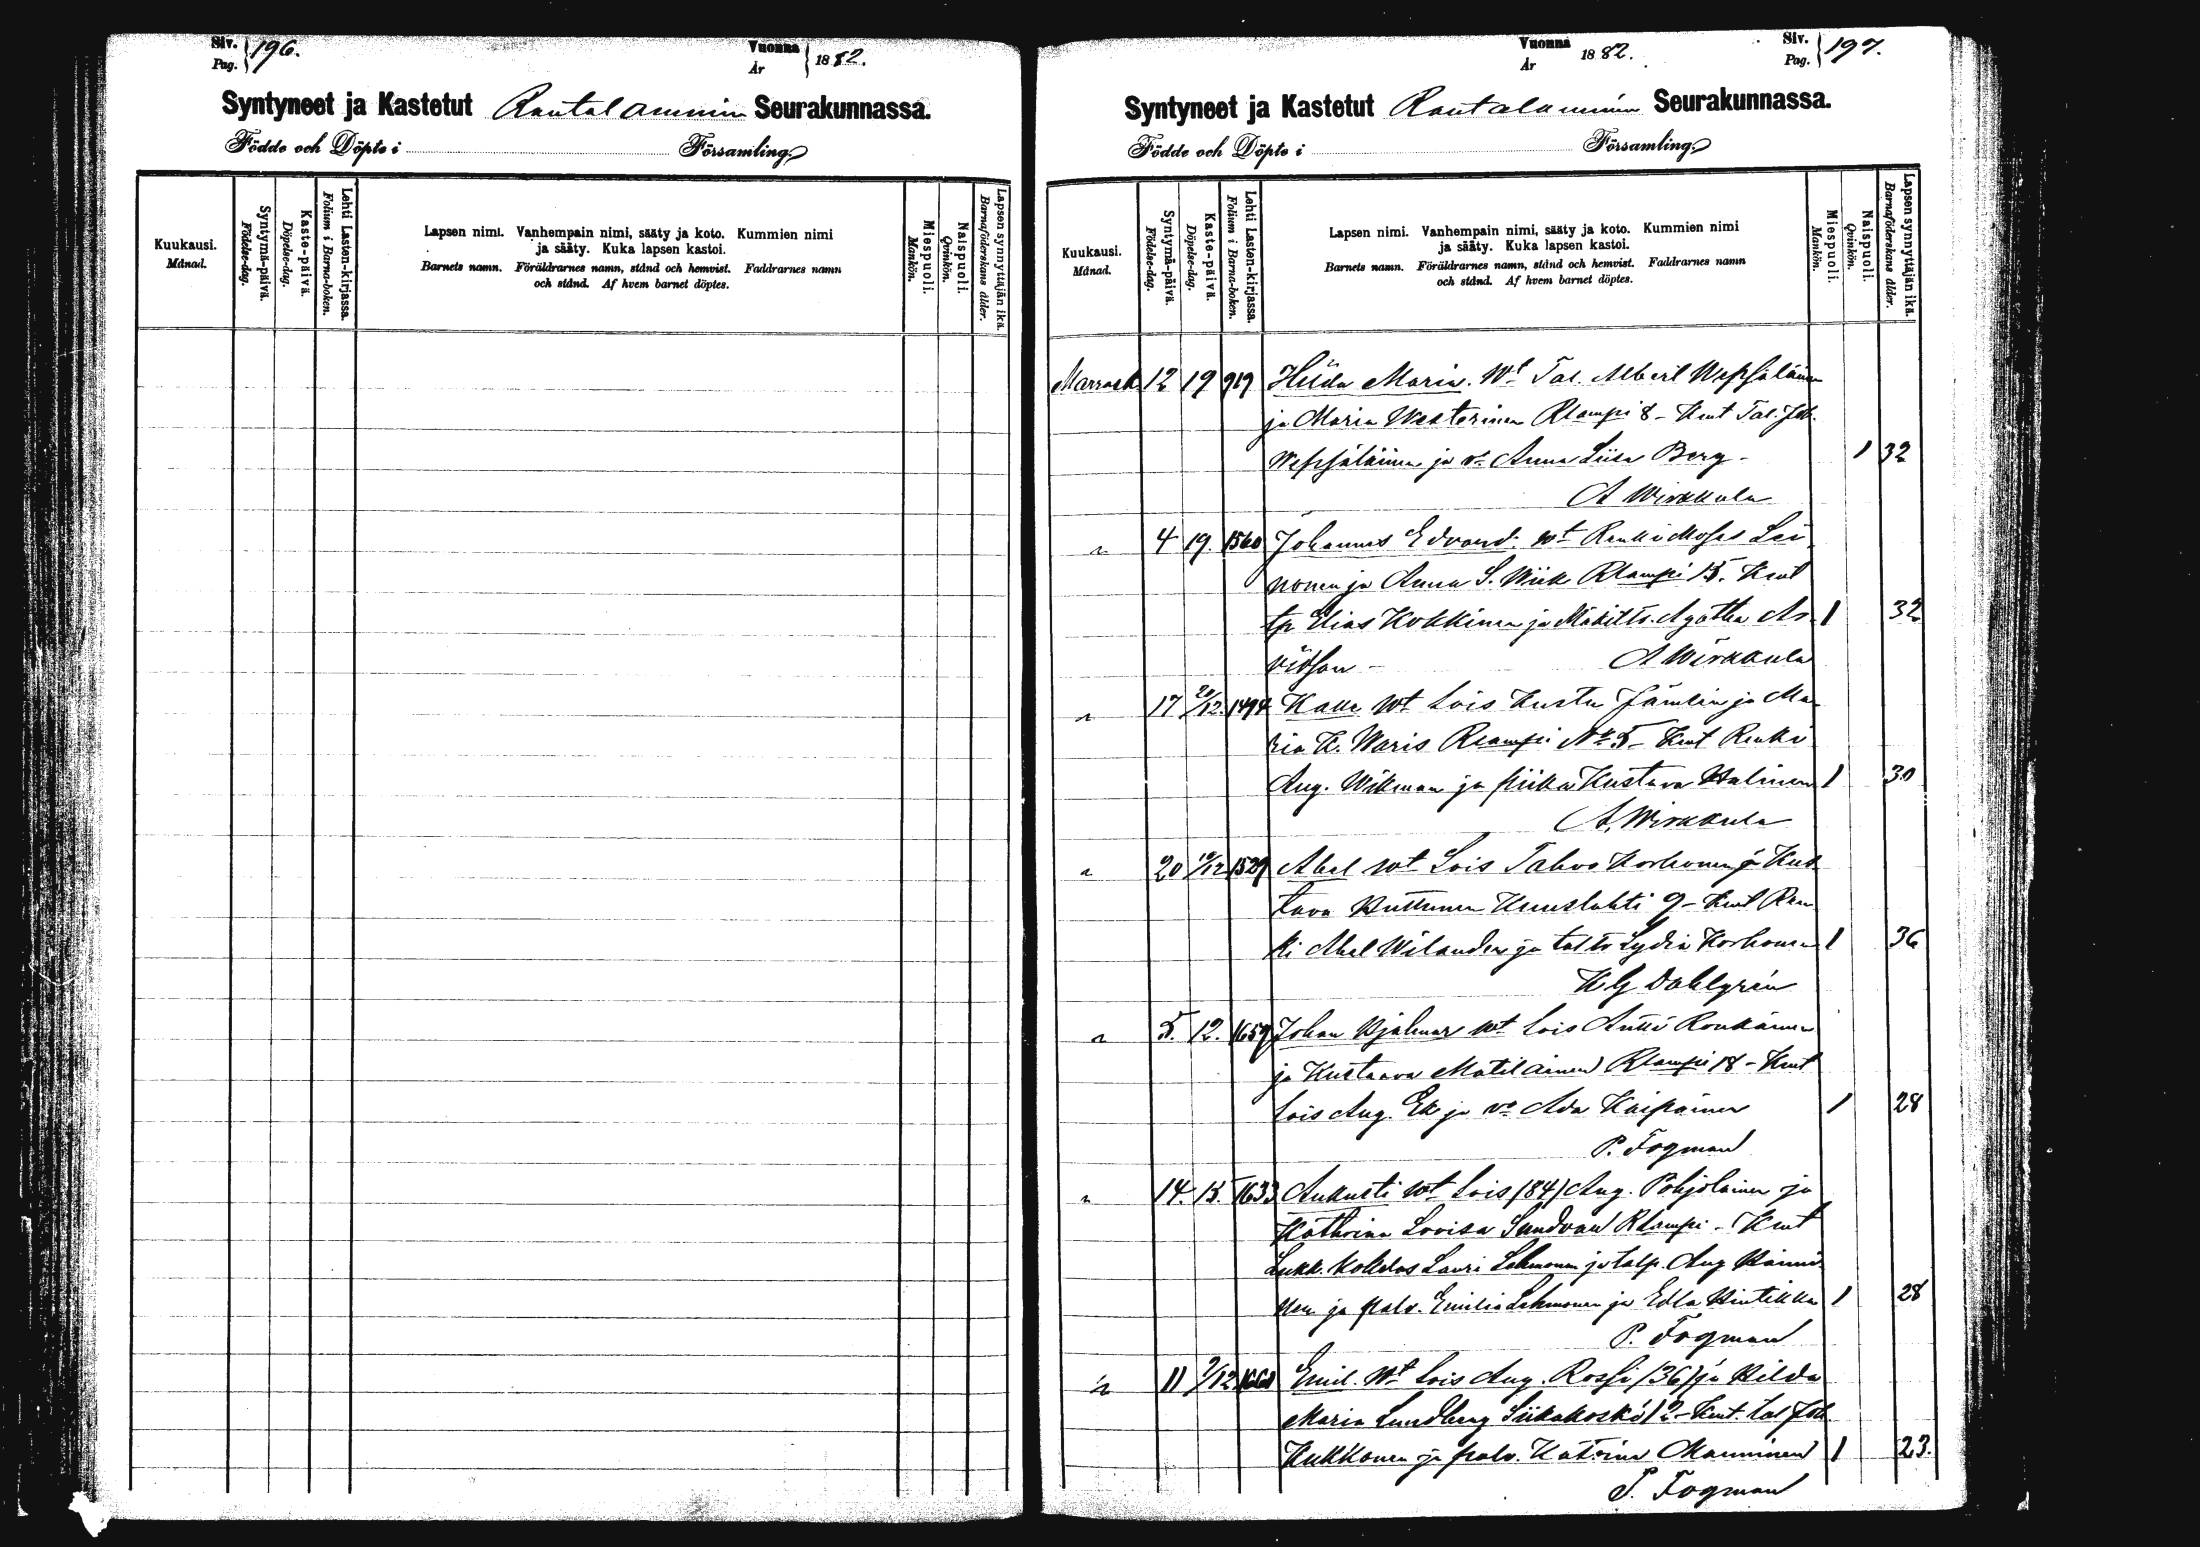 Siv. Pag. 196.
Vuonna År 1882.
Syntyneet ja Kastetut Rautalammin Seurakunnassa.
Födde och Döpte i Församling.
Kuukausi. Månad.
Syntymä-päivä. Födelse-dag.
Kaste-päivä. Döpelse-dag.
Lehti Lasten-kirjassa. Folium i Barna-boken.
Lapsen nimi. Vanhempain nimi, sääty ja koto. Kummien nimi
ja sääty. Kuka lapsen kastoi.
Barnets namn. Föräldrarnes namn, stånd och hemvist. Faddrarnes namn
och stånd. Af hvem barnet döptes.
Miespuoli. Mankön.
Naispuoli. Qvinkön.
Lapsen synnyttäjän ikä. Barnaföderskans ålder.
Vuonna År 1882.
Siv. Pag. 197.
Syntyneet ja Kastetut Rautalammin Seurakunnassa.
Födde och Döpte i Församling.
Kuukausi. Månad.
Syntymä-päivä. Födelse-dag.
Kaste-päivä. Döpelse-dag.
Lehti Lasten-kirjassa. Folium i Barna-boken.
Lapsen nimi. Vanhempain nimi, sääty ja koto. Kummien nimi
ja sääty. Kuka lapsen kastoi.
Barnets namn. Föräldrarnes namn, stånd och hemvist. Faddrarnes namn
och stånd. Af hvem barnet döptes.
Miespuoli. Mankön.
Naispuoli. Qvinkön.
Lapsen synnyttäjän ikä. Barnaföderskans ålder.
Marrask. 12 19 919 Hilda Maria. Wt Tal. Albert Wepsäläinen
ja Maria Westerinen Rlampi 8 - Kmt Tal. Joh.
Wepsäläinen ja vo Anna Liisa Berg - 1 32
A Wirkkula
" 4 19. 1560 Johannes Edvard. wt Renki Moses Lei
nonen ja Anna S. Wiik Rlampi 15. Kmt
tp Elias Kokkinen ja Mäkitts. Agatha Ar- 1 32
vidson - A Wirkkula
" 17 20/12. 1494 Kalle wt Lois Kustu Jämlin ja Ma
ria K. Waris Rlampi No 5 - Kmt Renki
Aug. Wikman ja piika Kustava Halinen 1 30
A. Wirkkula
" 20 10/12 1529 Abel wt Lois Tahvo Korhonen ja Kus
tava Huttunen Kuuslahti 9 - Kmt Ren
ki Abel Wilander ja taltr Lydia Korhonen 1 36
K G Dahlgrén
" 5. 12. 1659 Johan Hjalmar wt Lois Antti Ronkainen
ja Kustaava Matilainen Rlampi 18 - Kmt
Lois Aug. Ek ja vo Ada Kaipainen 1 28
P. Fogman
" 14. 15. 1633 Aukusti wt Lois (84) Aug. Pohjolainen ja
Kathrina Lovisa Sundvan Rlampi - Kmt
Lukk. Kokelas Lauri Lehmonen ja talp. Aug Hänni
nen ja palv. Emilia Lehmonen ja Edla Hintikka 1 28
P. Fogman
" 11 9/12 1668 Emil. Wt Lois Aug. Rossi (36) ja Hilda
Maria Lundberg Siikakoski 12 - Kmt. tal Joh
Kukkonen ja palv. Katrina Manninen 1 23.
P. Fogman